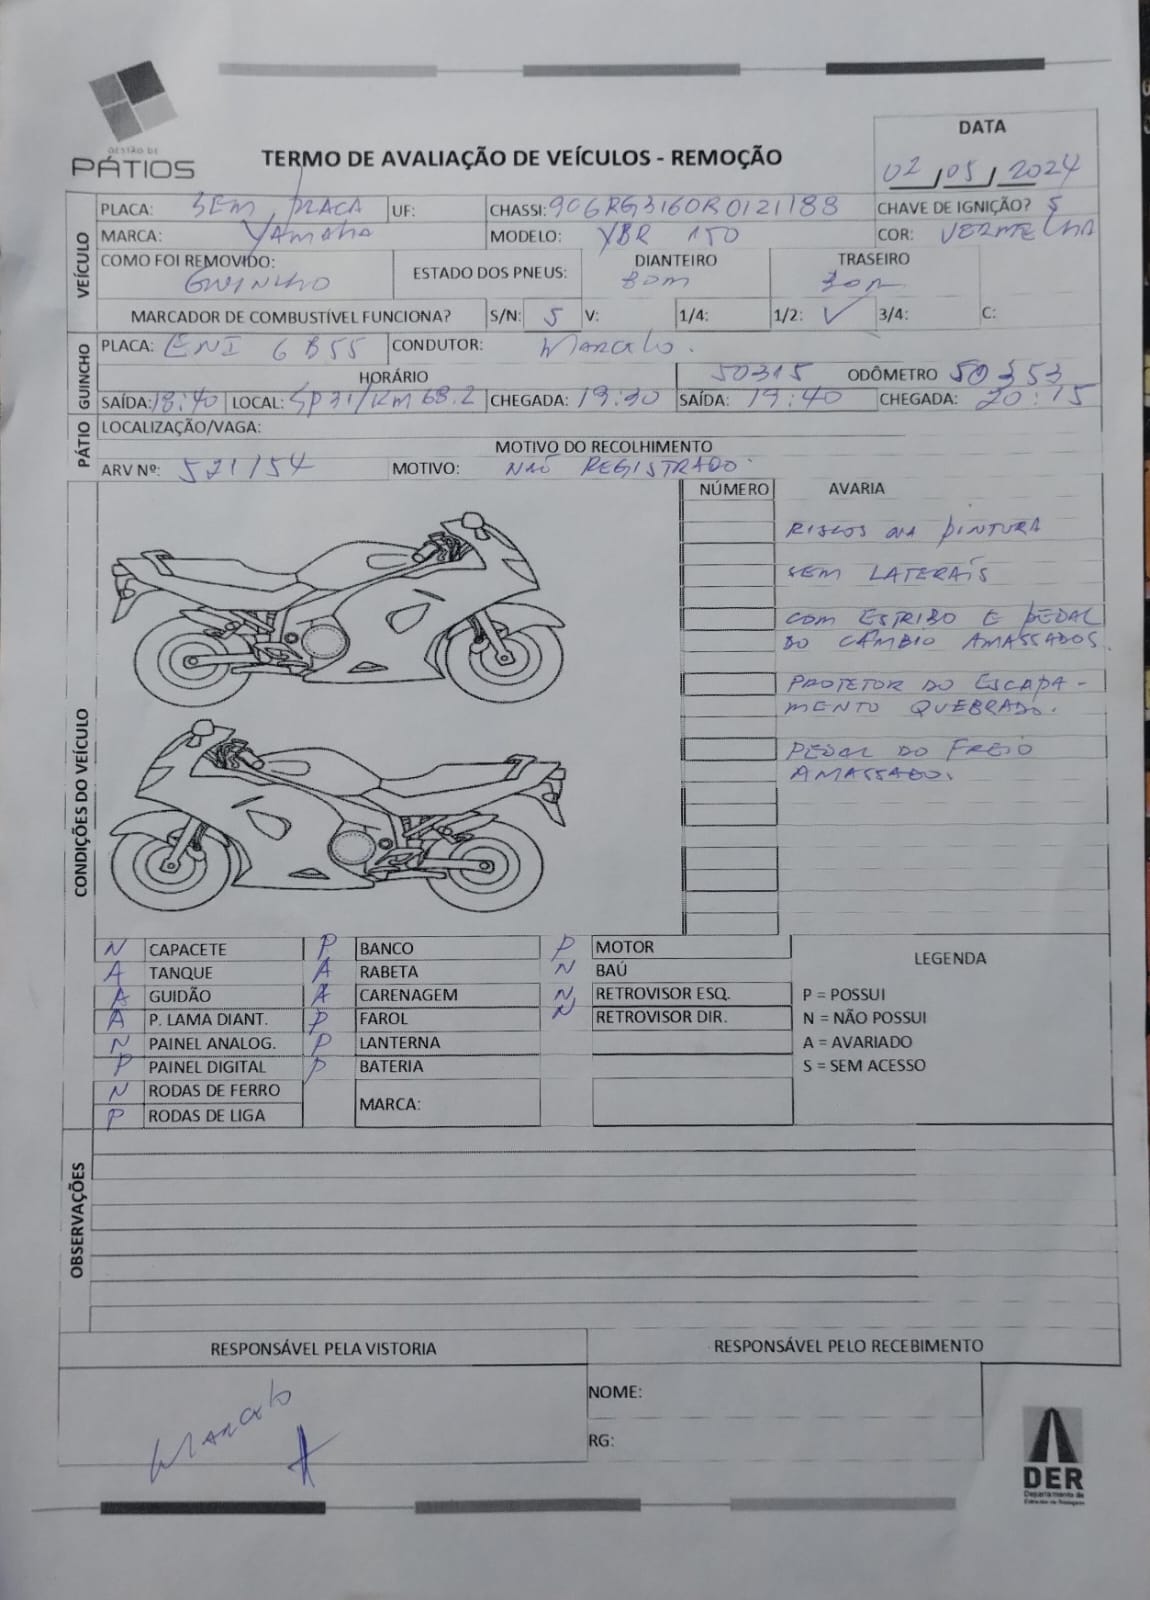 GESTÃO DE
PÁTIOS
TERMO DE AVALIAÇÃO DE VEÍCULOS - REMOÇÃO
DATA
02/05/2024
VEÍCULO
PLACA: SEM PLACA UF: CHASSI: 9C6RG3160R0121188 CHAVE DE IGNIÇÃO? S
MARCA: YAMAHA MODELO: YBR 150 COR: VERMELHA
COMO FOI REMOVIDO: GUINCHO ESTADO DOS PNEUS: DIANTEIRO BOM TRASEIRO BOM
MARCADOR DE COMBUSTÍVEL FUNCIONA? S/N: S V: 1/4: 1/2: ✓ 3/4: C:
GUINCHO
PLACA: ENI 6B55 CONDUTOR: MARCELO.
HORÁRIO 50315 ODÔMETRO 50353
SAÍDA: 18:40 LOCAL: SP31/KM 68.2 CHEGADA: 19:30 SAÍDA: 19:40 CHEGADA: 20:15
PÁTIO
LOCALIZAÇÃO/VAGA:
MOTIVO DO RECOLHIMENTO
ARV Nº: 521154 MOTIVO: NÃO REGISTRADO
CONDIÇÕES DO VEÍCULO
NÚMERO AVARIA
RISCOS NA PINTURA
SEM LATERAIS
COM ESTRIBO E PEDAL
DO CÂMBIO AMASSADOS.
PROTETOR DO ESCAPA-
MENTO QUEBRADO.
PEDAL DO FREIO
AMASSADO.
N CAPACETE P BANCO P MOTOR
A TANQUE A RABETA N BAÚ
A GUIDÃO A CARENAGEM N RETROVISOR ESQ.
A P. LAMA DIANT. P FAROL N RETROVISOR DIR.
N PAINEL ANALOG. P LANTERNA
P PAINEL DIGITAL P BATERIA
N RODAS DE FERRO MARCA:
P RODAS DE LIGA
LEGENDA
P = POSSUI
N = NÃO POSSUI
A = AVARIADO
S = SEM ACESSO
OBSERVAÇÕES
RESPONSÁVEL PELA VISTORIA RESPONSÁVEL PELO RECEBIMENTO
MARCELO
NOME:
RG:
DER
Departamento de
Estradas de Rodagem